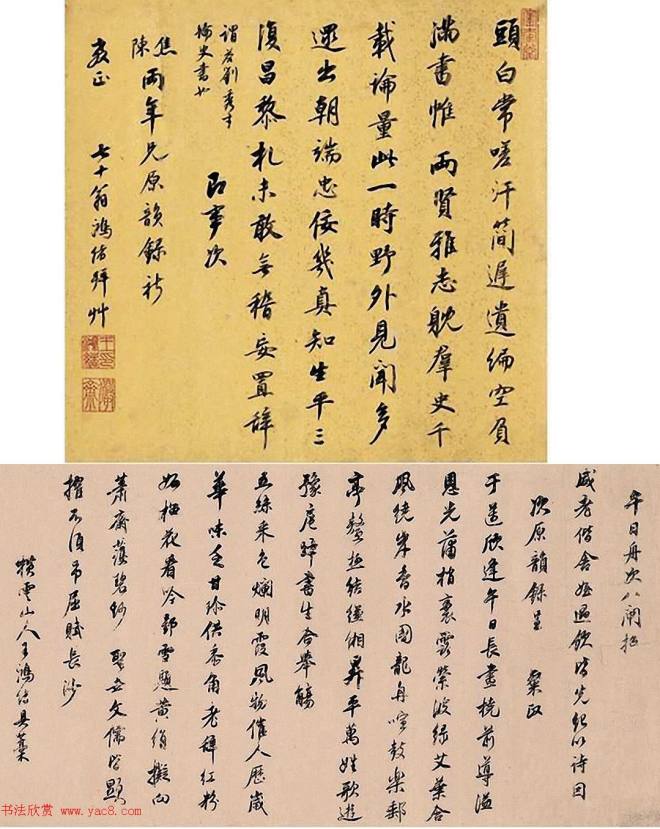 頭白常嗟汗簡遲遺編空負
滿書惟兩賢雅志躭羣史千
載論量此一時野外見聞多
遜出朝端忠佞幾真知生平三
復昌黎札未敢無稽妄置辞
謂答劉秀才
論史書也
即事次
焦
陳
兩年兄原韻錄祈
教正
七十翁鴻緒拜艸
午日舟次八閘招
咸老偕舍姪過飲時先紀以詩因
次原韻錄呈
粲政
于莲欣逢午日長畫橈前導溢
恩光蒲梢裛露縈波綠艾葉含
風繞岸香水國龍舟喧鼓樂郵
亭鰲極結縑緗昇平萬姓歌遊
豫扈蹕書生合舉觴
五絲采色斕明霞風物催人歷歲
華味乏甘珍供黍角老辞紅粉
如榴花看吟郢雪懸黃絹擬向
蕭齋蒞碧紗聖世文儒皆顯
擢不須弔屈賦長沙
橫雲山人王鴻緒具藁
书法欣赏 www.yac8.com